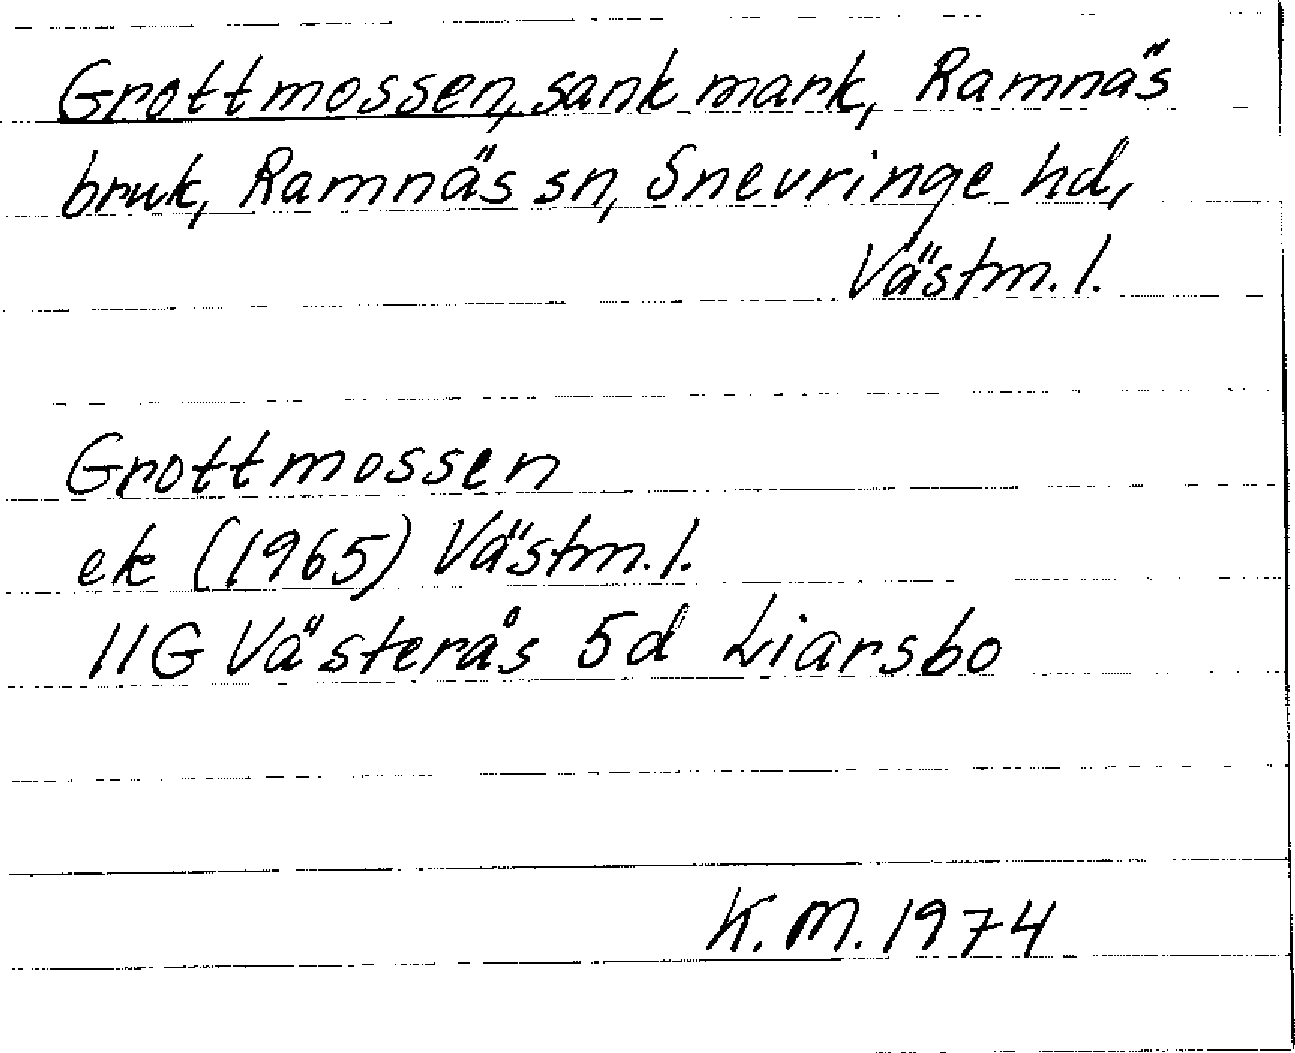 Grottmossen, sank mark, Ramnäs
bruk, Ramnäs sn, Snevringe hd,
Västm. l.
Grottmossen
ek (1965) Västm. l.
11G Västerås 5d Liarsbo
K. M. 1974